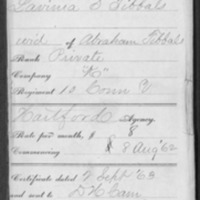 Lavinia S Tibbals
wid of Abraham Tibbals
Rank Private
Company "K"
Regiment 10 Conn V
Hartford Agency.
Rate per month, $ 8
Commencing 8 Aug '62
Certificate dated 9 Sept '63
and sent to D H Cain